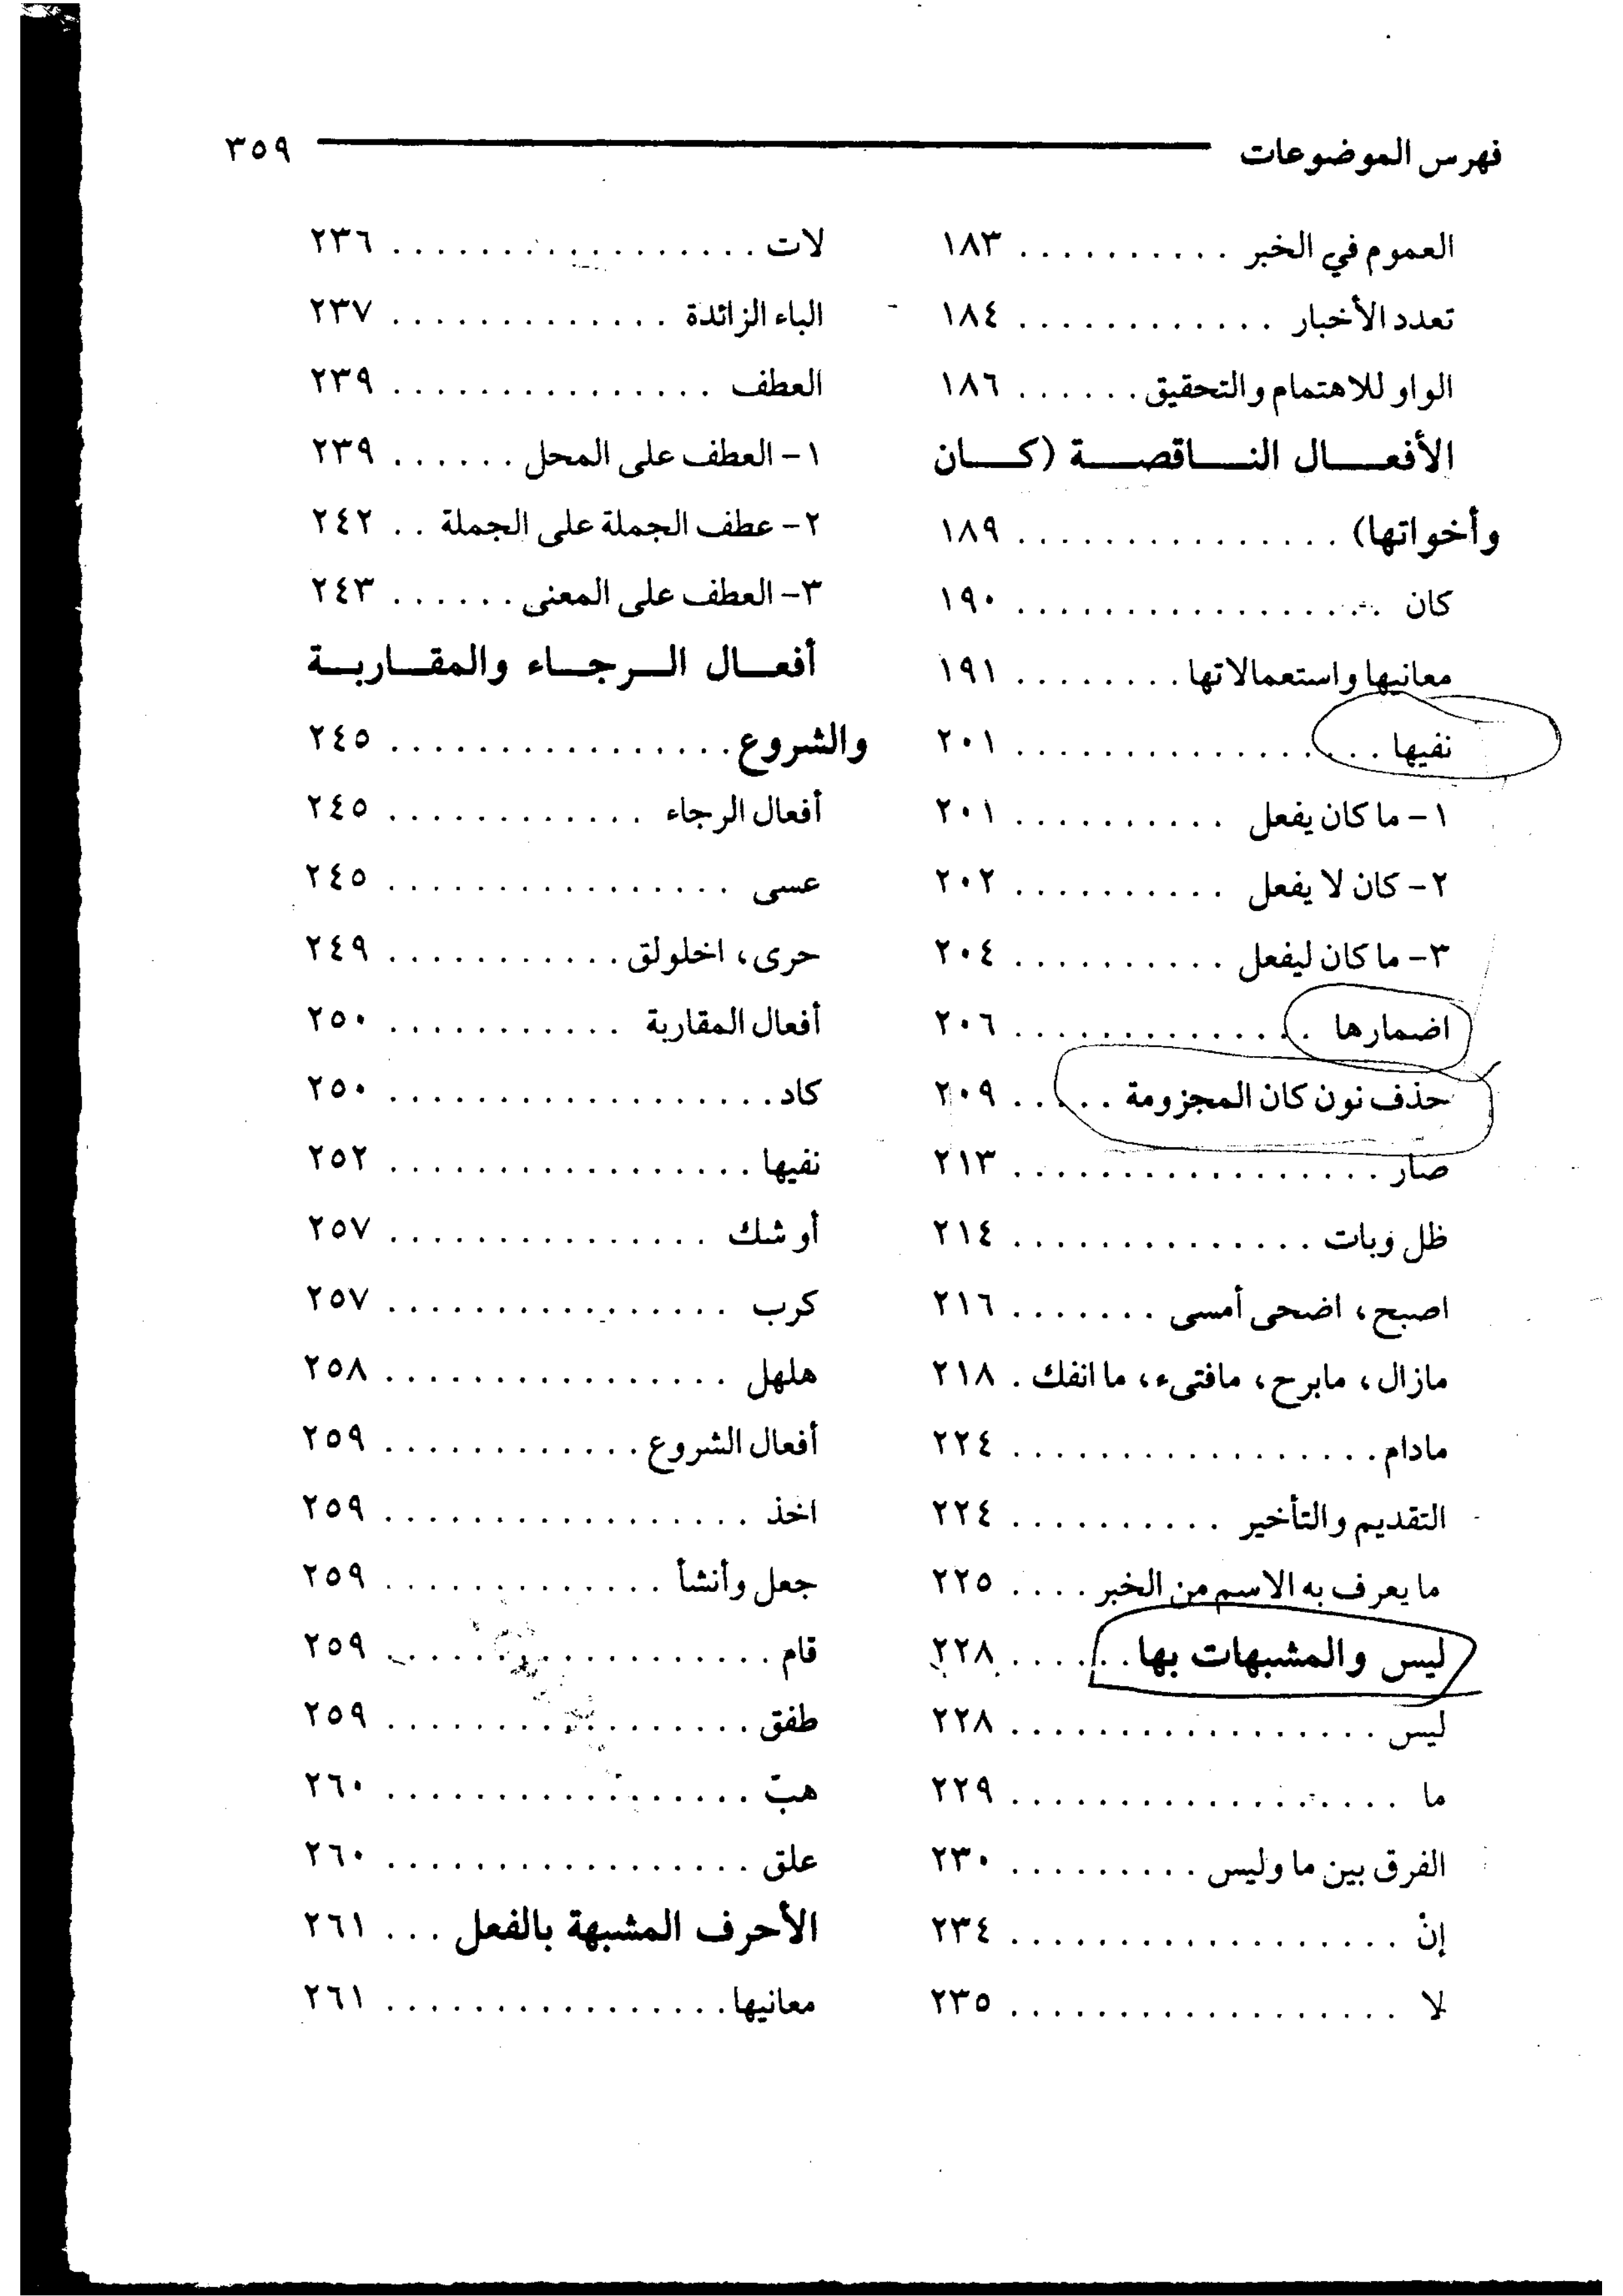 فهرس الموضوعات ٣٥٩
العموم في الخبر . . . . . . . . . . ١٨٣
تعدد الأخبار . . . . . . . . . . . . ١٨٤
الواو للاهتمام والتحقيق . . . . . . ١٨٦
الأفعــال النــاقصــة (كــان
وأخواتها) . . . . . . . . . . . . . . . ١٨٩
كان . . . . . . . . . . . . . . . . ١٩٠
معانيها واستعمالاتها . . . . . . . . ١٩١
نفيها . . . . . . . . . . . . . . . . ٢٠١
١- ما كان يفعل . . . . . . . . . . ٢٠١
٢- كان لا يفعل . . . . . . . . . . ٢٠٢
٣- ما كان ليفعل . . . . . . . . . . ٢٠٤
اضمارها . . . . . . . . . . . . . ٢٠٦
حذف نون كان المجزومة . . . . . ٢٠٩
صار . . . . . . . . . . . . . . . . . ٢١٣
ظل وبات . . . . . . . . . . . . . . ٢١٤
اصبح، اضحى أمسى . . . . . . . ٢١٦
مازال، مابرح، مافتىء، ما انفك . ٢١٨
مادام . . . . . . . . . . . . . . . . . ٢٢٤
التقديم والتأخير . . . . . . . . . . ٢٢٤
ما يعرف به الاسم من الخبر . . . . ٢٢٥
ليس والمشبهات بها . . . . . . ٢٢٨
ليس . . . . . . . . . . . . . . . . . ٢٢٨
ما . . . . . . . . . . . . . . . . . . ٢٢٩
الفرق بين ما وليس . . . . . . . . . ٢٣٠
إنْ . . . . . . . . . . . . . . . . . . ٢٣٤
لا . . . . . . . . . . . . . . . . . . ٢٣٥
لات . . . . . . . . . . . . . . . . . ٢٣٦
الباء الزائدة . . . . . . . . . . . . . ٢٣٧
العطف . . . . . . . . . . . . . . . ٢٣٩
١- العطف على المحل . . . . . . ٢٣٩
٢- عطف الجملة على الجملة . . ٢٤٢
٣- العطف على المعنى . . . . . . ٢٤٣
أفعــال الــرجــاء والمقــاربــة
والشروع . . . . . . . . . . . . . . . . ٢٤٥
أفعال الرجاء . . . . . . . . . . . . ٢٤٥
عسى . . . . . . . . . . . . . . . . ٢٤٥
حرى، اخلولق . . . . . . . . . . . ٢٤٩
أفعال المقاربة . . . . . . . . . . . ٢٥٠
كاد . . . . . . . . . . . . . . . . . . ٢٥٠
نفيها . . . . . . . . . . . . . . . . . ٢٥٢
أوشك . . . . . . . . . . . . . . . ٢٥٧
كرب . . . . . . . . . . . . . . . . ٢٥٧
هلهل . . . . . . . . . . . . . . . . ٢٥٨
أفعال الشروع . . . . . . . . . . . . ٢٥٩
اخذ . . . . . . . . . . . . . . . . . ٢٥٩
جعل وأنشأ . . . . . . . . . . . . . ٢٥٩
قام . . . . . . . . . . . . . . . . . . ٢٥٩
طفق . . . . . . . . . . . . . . . . . ٢٥٩
هبّ . . . . . . . . . . . . . . . . . ٢٦٠
علق . . . . . . . . . . . . . . . . . ٢٦٠
الأحرف المشبهة بالفعل . . . ٢٦١
معانيها . . . . . . . . . . . . . . . . ٢٦١